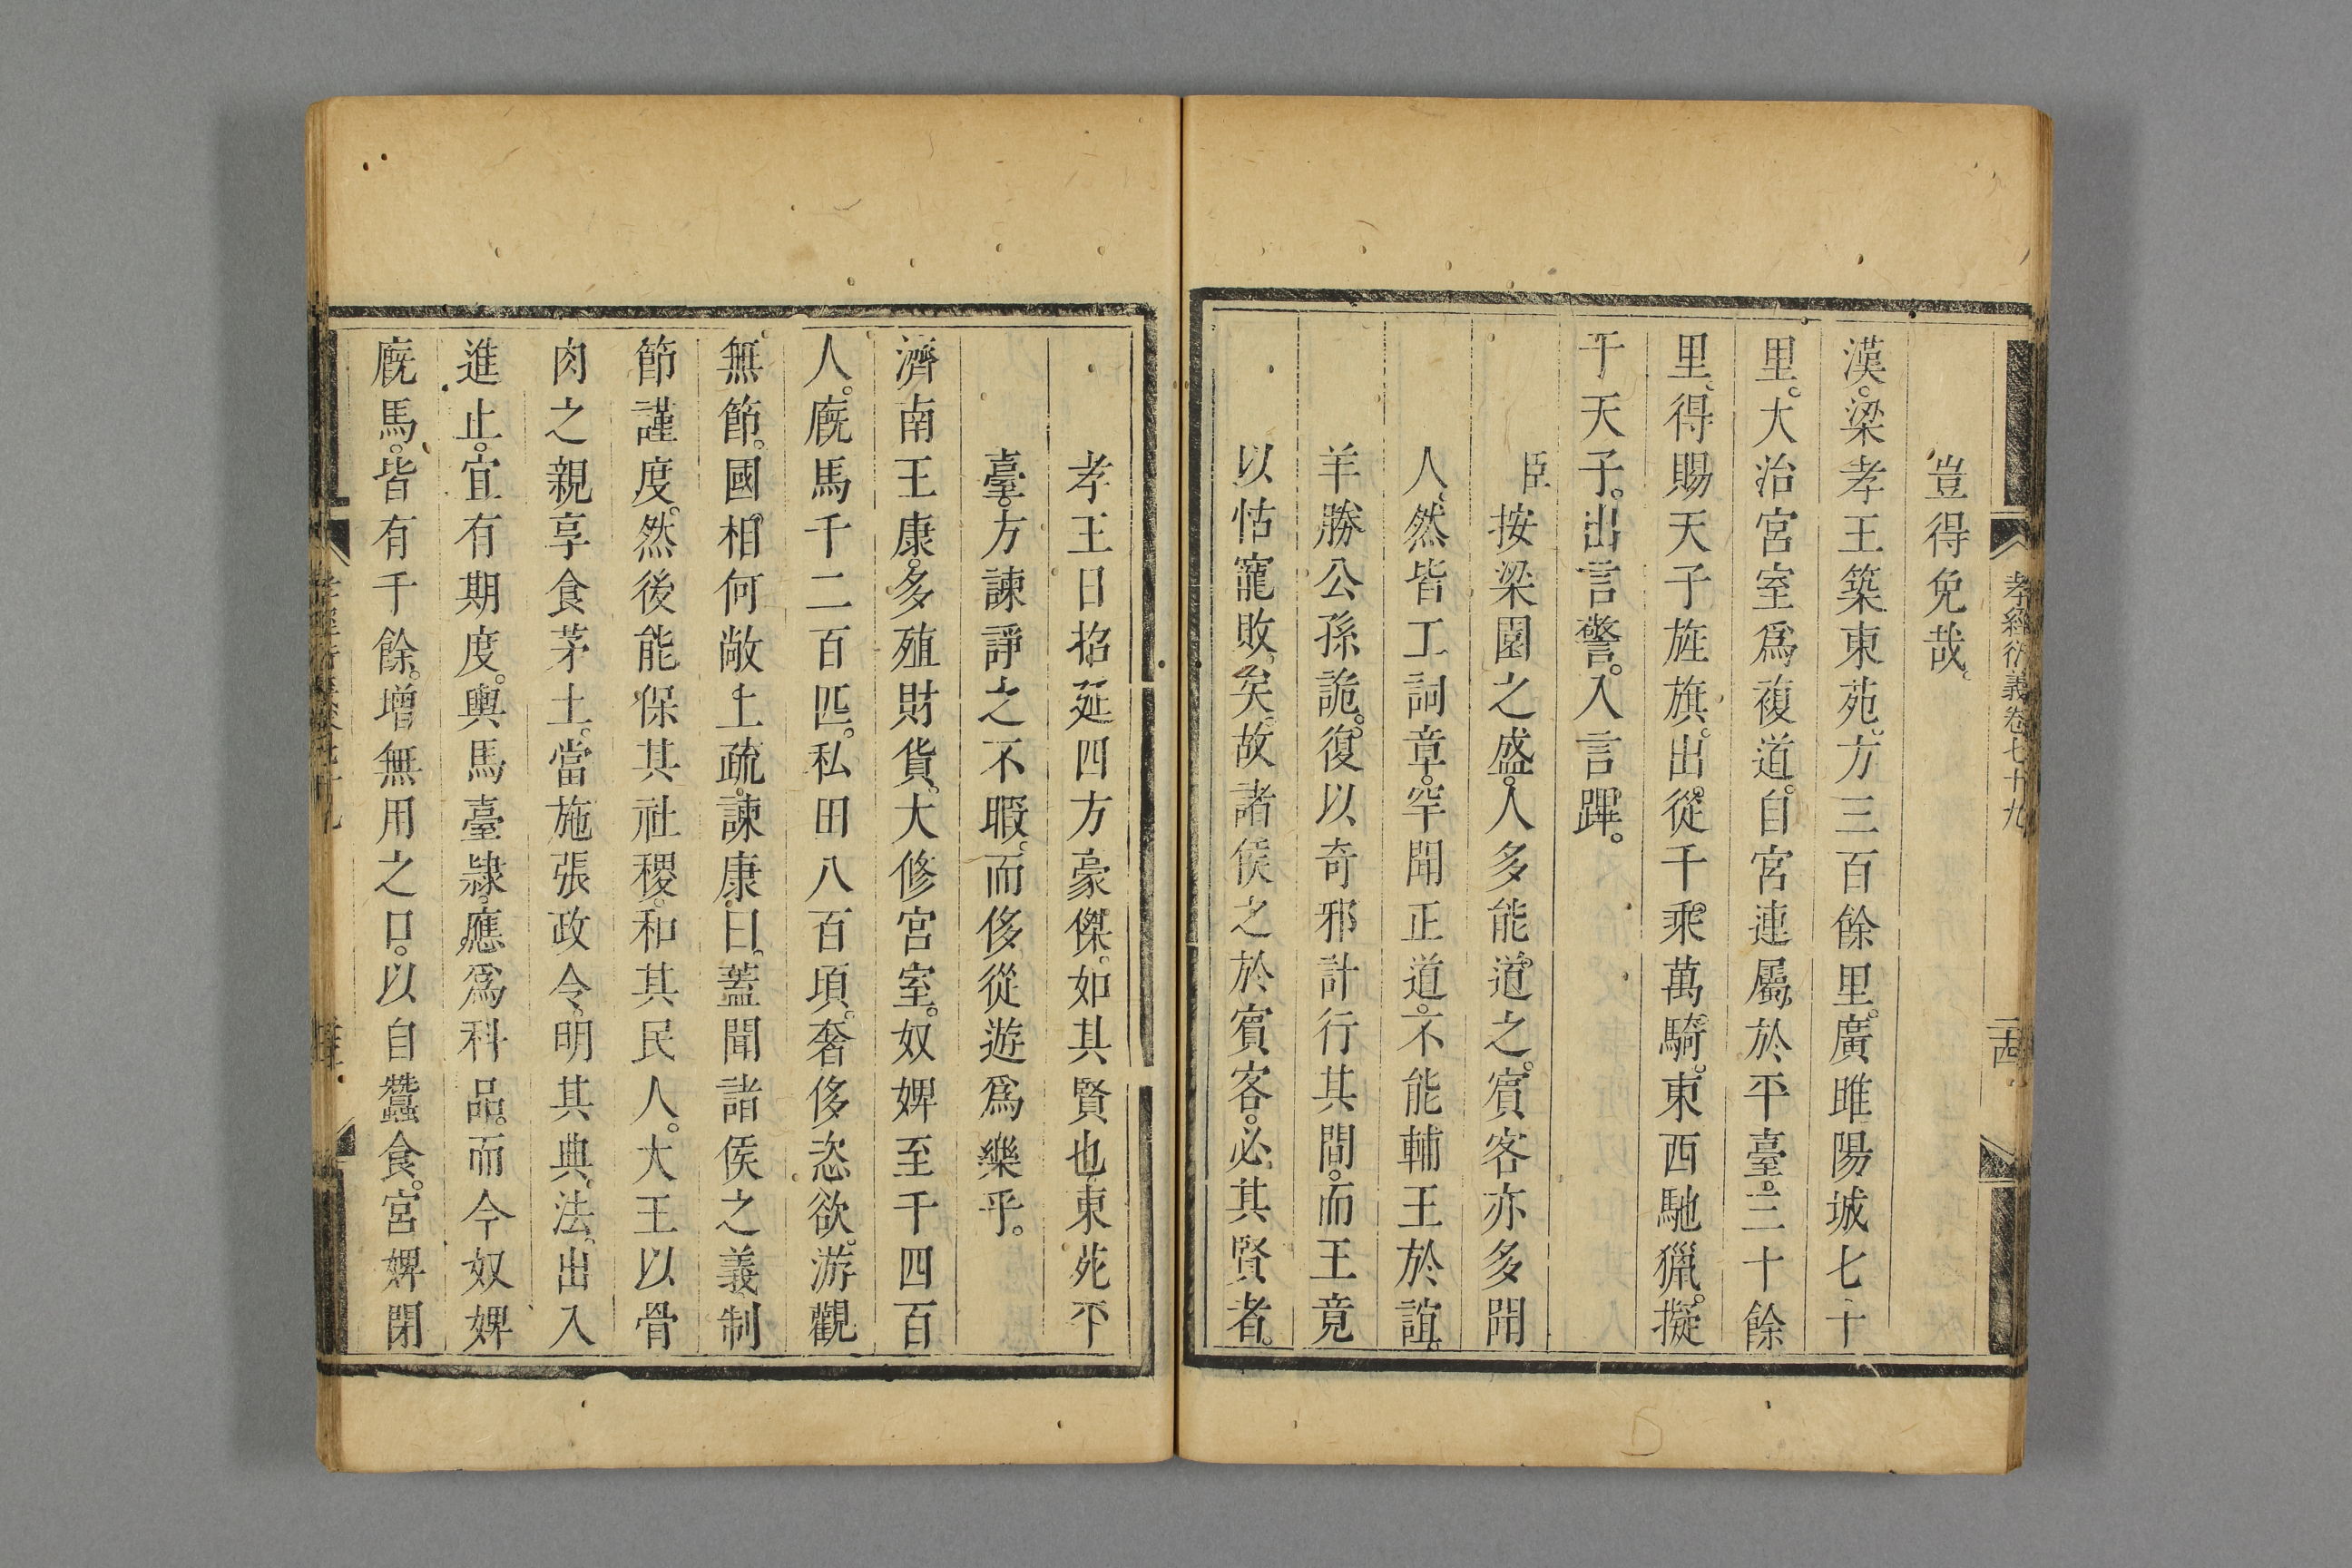 孝經衍義卷七十九
二十四
豈得免哉。
漢。梁孝王築東苑。方三百餘里。廣雎陽城七十
里。大治宮室爲複道。自宮連屬於平臺。三十餘
里。得賜天子旌旗。出從千乘萬騎。東西馳獵。擬
于天子。出言警。入言蹕。
臣按梁園之盛。人多能道之。賓客亦多聞
人。然皆工詞章。罕聞正道。不能輔王於誼。
羊勝公孫詭。復以奇邪計行其間。而王竟
以怙寵敗矣。故諸侯之於賓客。必其賢者。
孝王日招延四方豪傑。如其賢也東苑平
臺。方諫諍之不暇。而侈從遊爲樂乎。
濟南王康。多殖財貨。大修宮室。奴婢至千四百
人。廐馬千二百匹。私田八百項。奢侈恣欲。游觀
無節。國相何敞上疏。諫康曰。蓋聞諸侯之義制
節謹度。然後能保其社稷。和其民人。大王以骨
肉之親享食茅土。當施張政令。明其典法。出入
進止。宜有期度。輿馬臺隸。應爲科品。而今奴婢
廐馬。皆有千餘。增無用之口。以自蠶食。宮婢閉